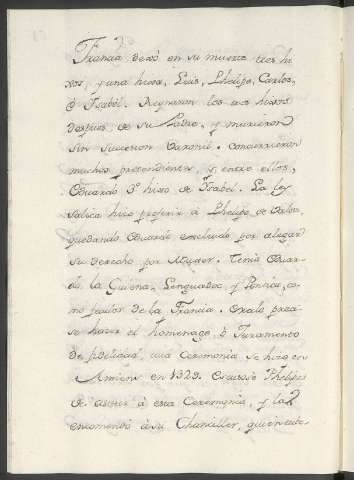 Francia dexó en su muerte tres hi-
xos, y una hixa, Luis, Phelipe, Carlos,
é Ysabel. Reynaron los tres hixos
despues de su Padre, y murieron
sin succesion varonil. Concurrieron
muchos pretendientes, y entre ellos,
Eduardo 3º hixo de Ysabel. La ley
salica hizo preferir à Phelipe de Valois,
quedando Eduardo excluido por alegar
su derecho por Muger. Tenia Eduar-
do la Guiena, Lenguadoc, y co-
mo feudos de la Francia. Erale preci-
so hacer el homenage, ó Juramento
de fidelidad, cuia Ceremonia se hizo en
Amiens en 1329. Escusose Phelipe
de asistir à esta Ceremonia, y la
encomendó à su Chanciller, quien